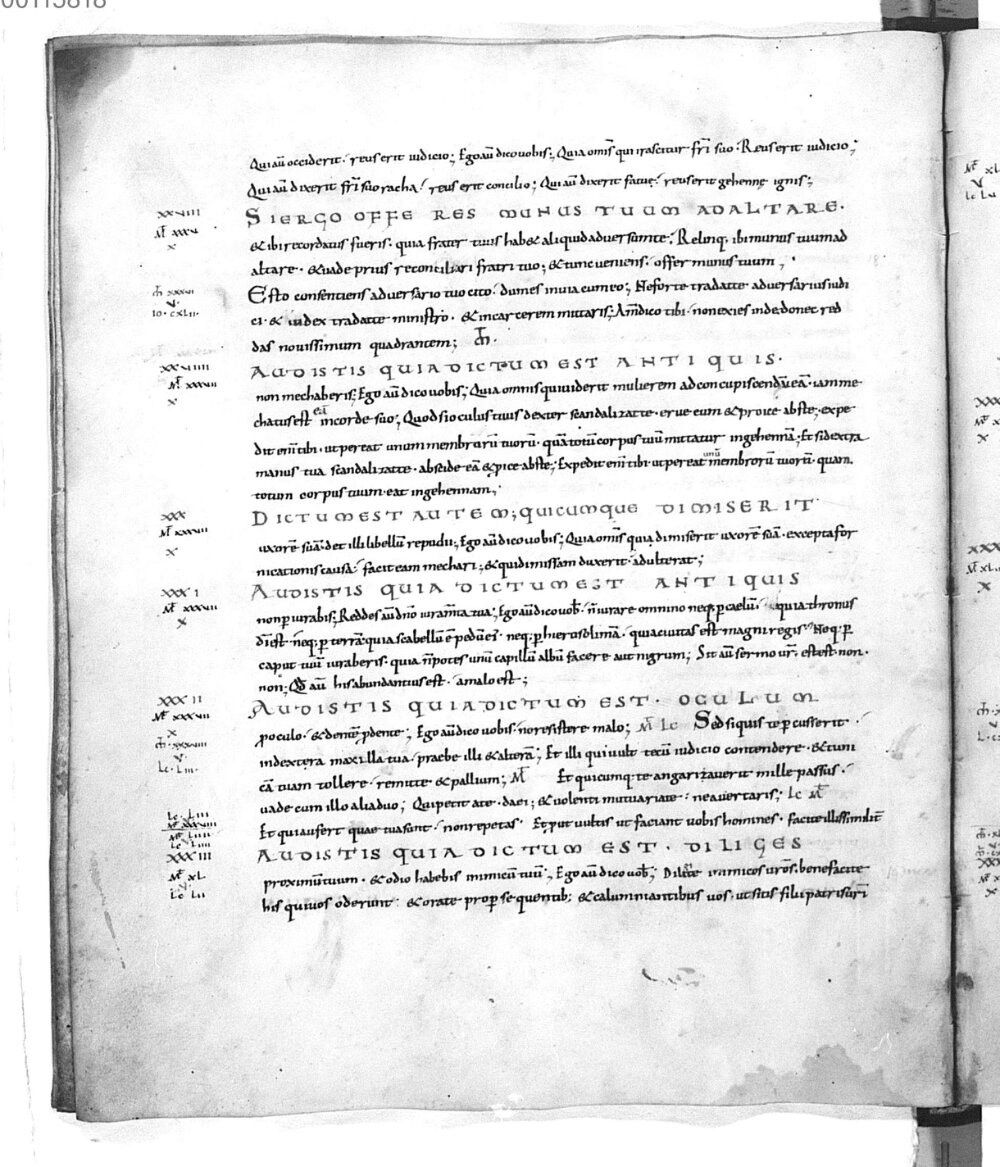 Qui aū occiderit· reus erit iudicio; Ego aū dico uobis; Quia omīs qui irascitur fr̄i suo· Reus erit iudicio;
Qui aū dixerit fr̄i suo racha· reus erit concilio; Qui aū dixerit fatuę· reus erit gehennę ignis;
XXVIII
SI ERGO OFFERES MUNUS TUUM AD ALTARE·
& ibi recordatus fueris· quia frater tuus hab& aliquid aduersum te; Relinq· ibi munus tuum ad
altare· & uade prius reconciliari fratri tuo; & tunc ueniens· offer munus tuum;
Esto consentiens aduersario tuo cito· dum es in uia cum eo; Ne forte tradat te aduersarius iudi
IO· CXLII·
ci· & iudex tradat te ministro· & in carcerem mittaris; Am̄ dico tibi· non exies inde· donec red
das nouissimum quadrantem; m̄·
XXVIIII
AUDISTIS QUIA DICTUM EST ANTIQUIS·
non mechaberis; Ego aū dico uobis; Quia omnis qui uiderit mulierem ad concupiscendū eā· iam me
chatus est eā in corde suo; Quod si oculus tuus dexter scandalizat te· erue eum & proice abs te; expe
dit em̄ tibi· ut pereat unum membrorū tuorū· quā totū corpus tuū mittatur in gehennā; Et si dextra
manus tua scandalizat te· abscide eā & ꝓice abs te; Expedit em̄ tibi· ut pereat unū membrorū tuorū· quam
totum corpus tuum eat in gehennam;
XXX
DICTUM EST AUTEM; QUICUMQUE DIMISERIT
uxorē suā· det illi libellū repudii; Ego aū dico uobis; Quia omīs qui dimiserit uxorē suā· excepta for
nicationis causa· facit eam mechari; & qui dimissam duxerit· adulterat;
XXXI
AUDISTIS QUIA DICTUM EST ANTIQUIS
non ꝑiurabis; Reddes aū dn̄o iuram̄ta tua; Ego aū dico uob̄· n̄ iurare omnino neq· ꝑ caelū· quia thronus
d̄i est· neq· ꝑ terrā· quia scabellū ē pedū ei· neq· ꝑ hierosolimā· quia ciuitas est magni regis· Neq· ꝑ
caput tuū iuraberis· quia n̄ potes unū capillū albū facere aut nigrum; Sit aū sermo ur̄· est est· non·
non; Qd̄ aū his abundantius est· a malo est;
XXXII
AUDISTIS QUIA DICTUM EST· OCULUM
ꝓ oculo· & dentē ꝓ dente; Ego aū dico uobis· n̄ resistere malo; M̄ Lc Sed si quis te ꝑcusserit
in dextera maxilla tua· praebe illi & alterā; Et illi qui uult tecū iudicio contendere· & tuni
Lc· LIII·
cā tuam tollere· remitte & pallium; M̄ Et quicumq· te angarizauerit mille passus·
uade cum illo alia duo; Qui petit a te· da ei; & uolenti mutuari a te· ne auertaris; Lc M̄
Et qui aufert quae tua sunt· non repetas· Et ꝓut uultis ut faciant uobis homines· facite illis similit̄
XXXIII
AUDISTIS QUIA DICTUM EST· DILIGES
M̄ XL
proximū tuum· & odio habebis inimicū tuū; Ego aū dico uob̄; Diligite inimicos uros· benefacite
Lc LII
his qui uos oderunt· & orate pro ꝑsequentib; & calumniantibus uos· ut sitis filii patris ur̄i